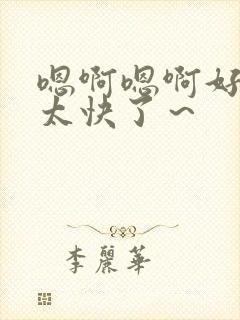 嗯啊嗯啊好
太快了～
李麗華